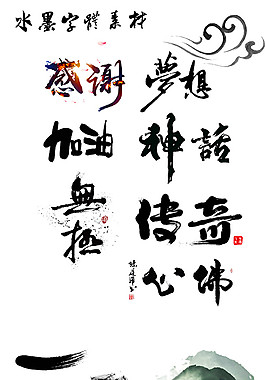 水墨字體素材
感谢
夢想
加油
神話
無極
傳奇
心佛